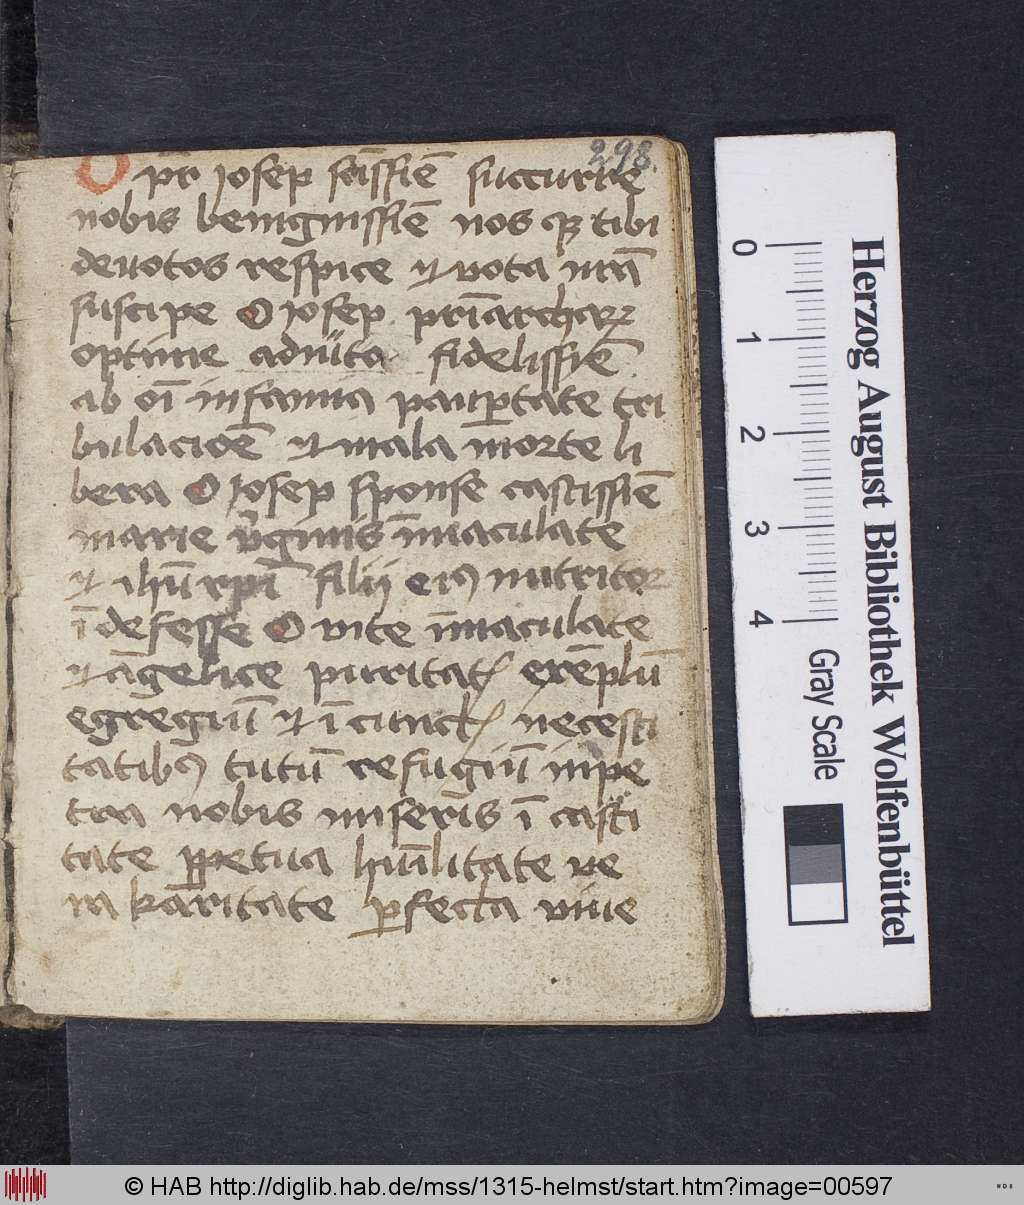 298
O pr̄ Josep sc̄issiē succurre
nobis benignissiē nos qꝫ tibi
deuotos respice et vota nr̄a
suscipe O Josep pr̄iarcharꝝ
optime aduūca fidelissiē
ab oī infamia paup̱tate tri
bulacioē et mala morte li
bera O Josep sponse castissiē
marie v̓ginis īmaculate
et ihū xp̄i filij eiꝰ nutritor
ī defesse O vite īmaculate
et āgelice puritatꝭ exēplū
egregiū et ī cunctꝭ necessi
tatibꝰ tutū refugiū inpe
tra nobis miser̄is ī casti
tate ꝑpetua hūilitate ve
ra karitate ꝑfecta viue
Herzog August Bibliothek Wolfenbüttel
0 1 2 3 4 Gray Scale
© HAB http://diglib.hab.de/mss/1315-helmst/start.htm?image=00597